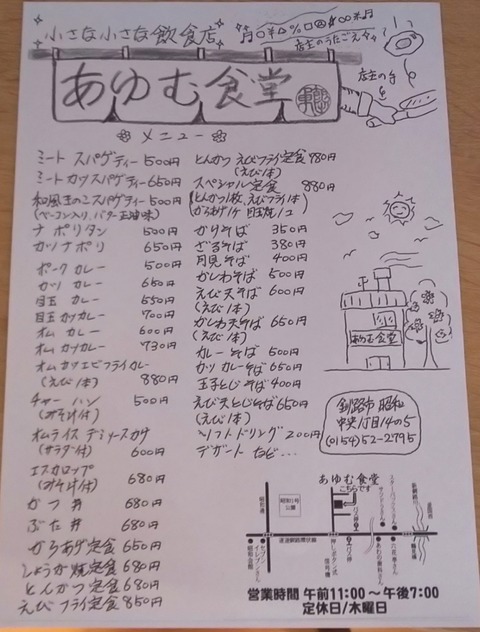 小さな小さな飲食店
店主のうたごえ
あゆむ食堂
店主の手
メニュー
ミート スパゲティー 500円
ミートカツスパゲティー 650円
和風きのこスパゲティー 500円
(ベーコン入り、バター正油味)
ナポリタン 500円
カツナポリ 650円
ポーク カレー 500円
カツ カレー 650円
目玉 カレー 550円
目玉カツカレー 700円
オム カレー 600円
オムカツカレー 730円
オムカツエビフライカレー
(えび1本) 880円
チャーハン 500円
(みそ汁付)
オムライス デミソースガケ
(サラダ付) 600円
エスカロップ
(みそ汁付) 680円
かつ丼 680円
ぶた丼 680円
からあげ定食 650円
しょうが焼定食 680円
とんかつ定食 680円
えびフライ定食 850円
とんかつ えびフライ定食 980円
(えび1本)
スペシャル定食 880円
(とんかつ1枚、えびフライ1本
からあげ1ケ 目玉焼1/2)
かけそば 350円
ざるそば 380円
月見そば 400円
かしわそば 500円
えび天そば 600円
(えび1本)
かしわ天そば 650円
(えび1本)
カレーそば 500円
カツカレーそば 650円
玉子とじそば 400円
えび天とじそば 650円
(えび1本)
ソフトドリンク 200円
デザート など…
あゆむ食堂
釧路市 昭和
中央1丁目14の5
(0154)52-2795
あゆむ食堂
こちらです
営業時間 午前11:00～午後7:00
定休日/木曜日